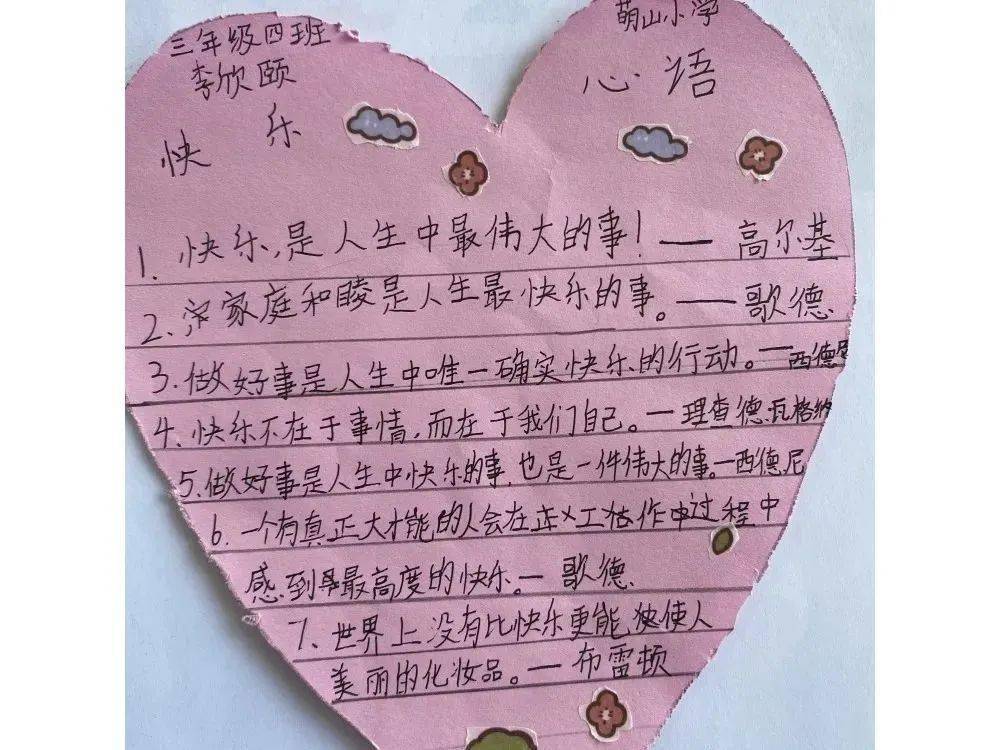 三年级四班
李欣颐
萌山小学
心语
快乐
1. 快乐,是人生中最伟大的事! — 高尔基
2. 家庭和睦是人生最快乐的事。— 歌德
3. 做好事是人生中唯一确实快乐的行动。— 西德尼
4. 快乐不在于事情,而在于我们自己。— 理查德·瓦格纳
5. 做好事是人生中快乐的事,也是一件伟大的事。—西德尼
6. 一个有真正大才能的人会在工作中过程中
感到最高度的快乐 — 歌德
7、世界上没有比快乐更能使人
美丽的化妆品。— 布雷顿